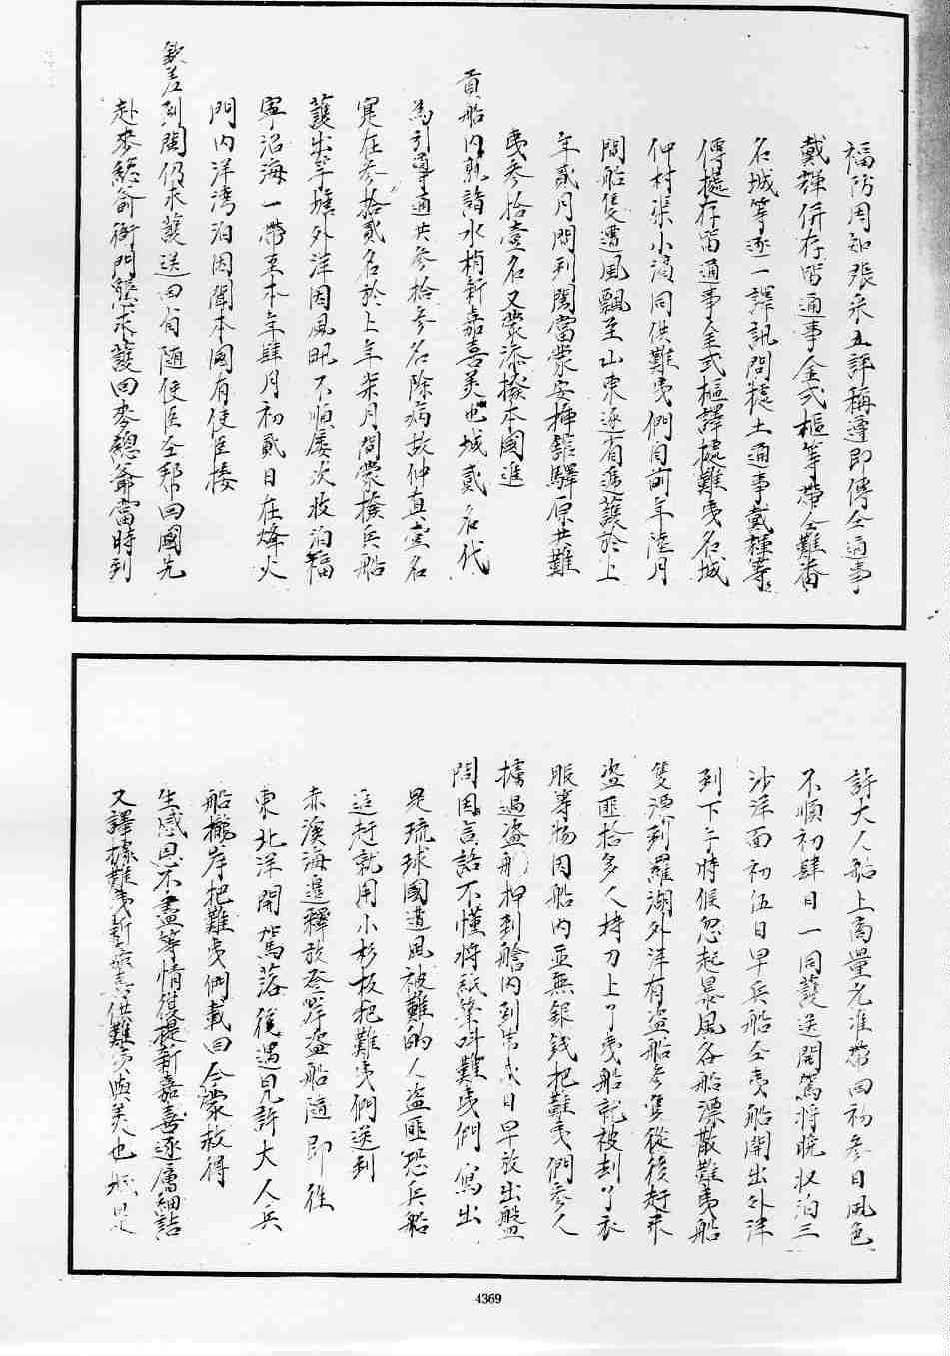 福防同知張采五詳稱遵即傳仝通事
戴輝併存留通事金式樞等帶仝難番
名城等逐一譯訊問據土通事戴輝等
傳據存留通事金式樞譯據難夷名城
仲村渠小滿同供難夷們自前年陸月
間船隻遭風飄至山東逐有遞護於上
年貳月間到閩當蒙安插館驛原共難
夷參拾壹名又蒙添撥本國進
貢船內熟諳水梢新嘉喜美也城貳名代
為引導通共參拾參名除病故仲真壹名
寔在參拾貳名於上年柒月間蒙撥兵船
護出竿塘外洋因風汛不順屡次收泊福
寧沿海一帶至本年肆月初貳日在烽火
門內洋灣泊因聞本國有使臣接
欽差到閩仍求護送回省隨使臣仝幫回國先
赴麥總爺衙門懇求護回麥總爺當時到
許大人船上商量允准帶回初參日風色
不順初肆日一同護送開駕將晚收泊三
沙洋面初伍日早兵船仝夷船開出外洋
到下午時候忽起暴風各船漂散難夷船
隻漂到羅湖外洋有盜船參隻從後赶來
盜匪拾多人持刀上了夷船就被刦了衣
服等物因船內並無銀錢把難夷們參人
擄過盜船押到艙內到 日早放出盤
問因言語不懂將紙筆呌難夷們寫出
是琉球國遭風被難的人盜匪恐兵船
追赶就用小杉板把難夷們送到
赤溪海邊釋放登岸盜船隨即往
東北洋開駕落後遇見許大人兵
船攏岸把難夷們載回今蒙救得
生感恩不盡等情復提新嘉喜逐層細詰
又譯據難夷新嘉喜供難夷與美也城是